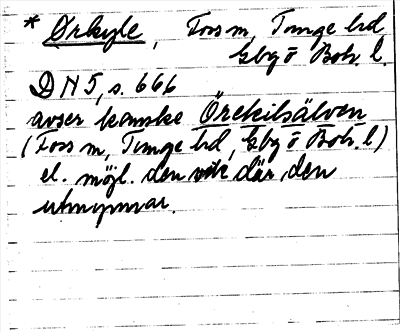 * Ørkyle, Foss sn, Tunge hd,
Gbg o Boh. l.
DN 5, s. 666
avser kanske Örekilsälven
(Foss sn, Tunge hd, Gbg o Boh. l)
el. möjl. den vik där den
utmynnar.